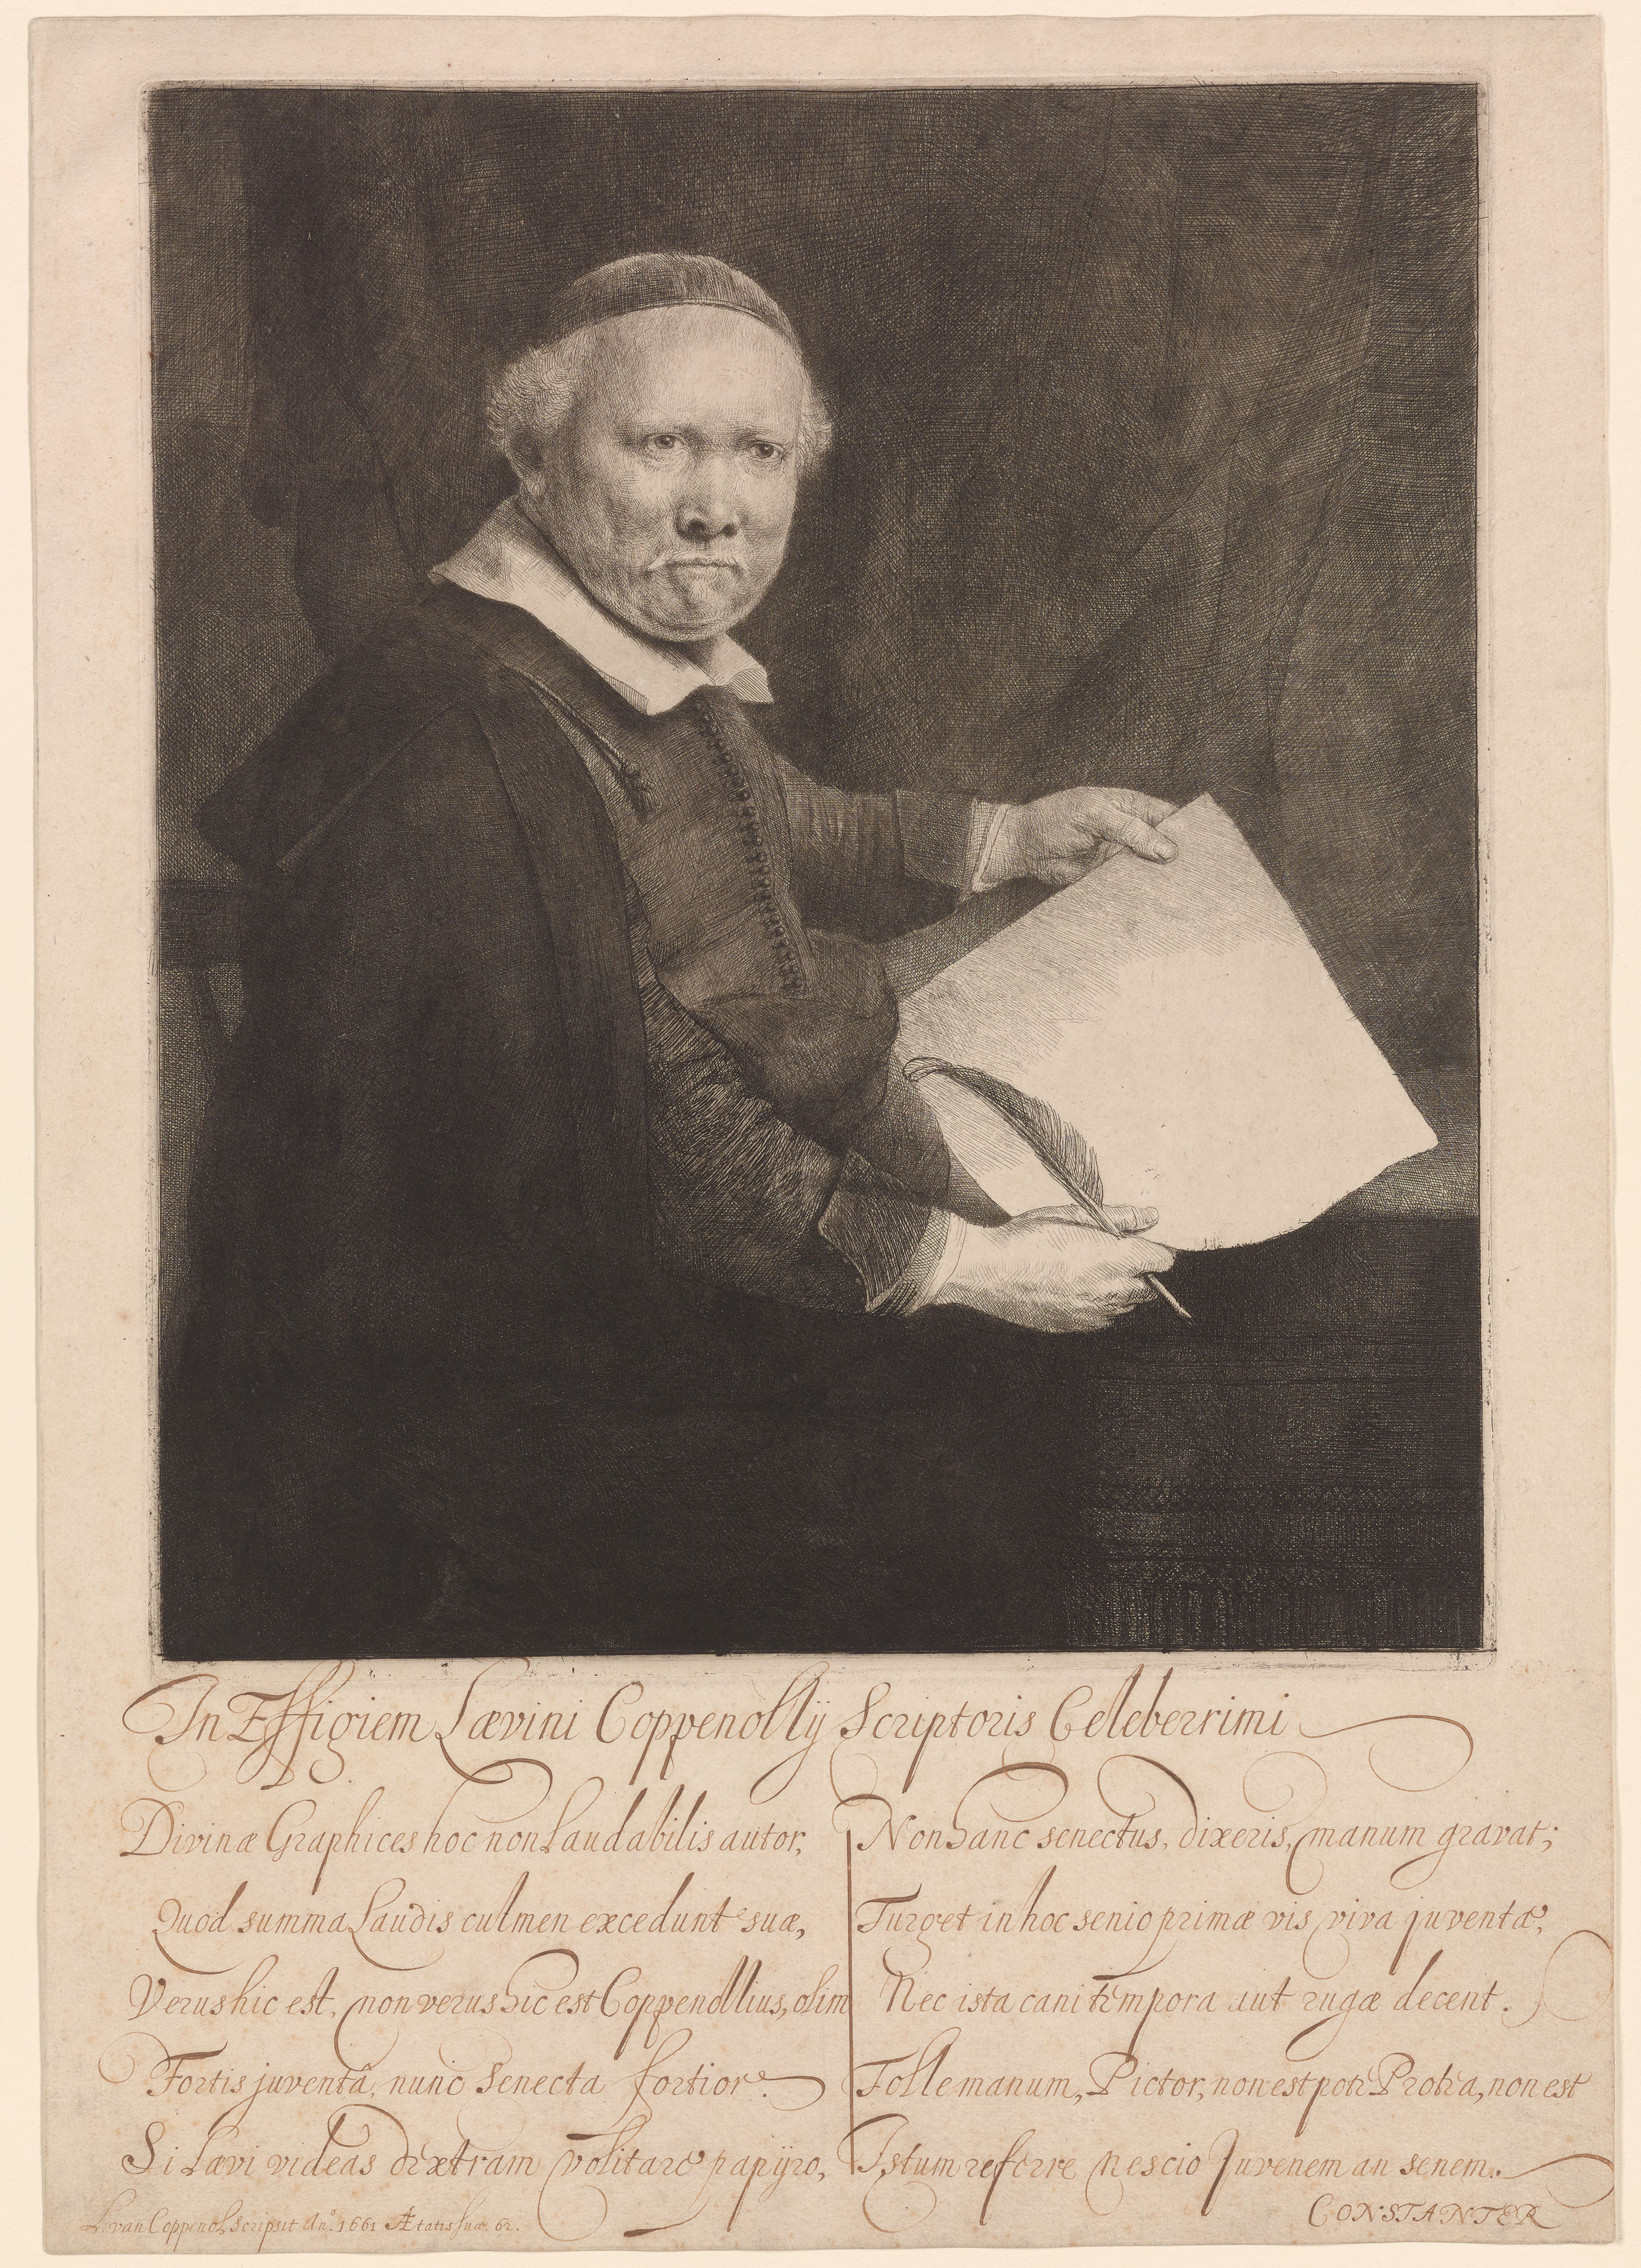 In Effigiem Lævini Coppenolly Scriptoris Celeberrimi
Divinæ Graphices hoc non laudabilis autor,
Quod summa Laudis culmen excedunt suæ,
Verus hic est, non verus hic est Coppenollius, olim
Fortis juventâ, nunc Senecta fortior.
Si Lævi videas dextram volitare papyro,
Non hanc senectus, dixeris, manum gravat;
Turget in hoc senio primæ vis viva juventæ,
Nec ista cani tempora aut rugæ decent.
Tolle manum, Pictor, non est pote Protea, non est
Istum referre nescio Juvenem an senem.
L. van Coppenol, Scripsit An.º 1661 Ætatis suæ. 62.
CONSTANTER